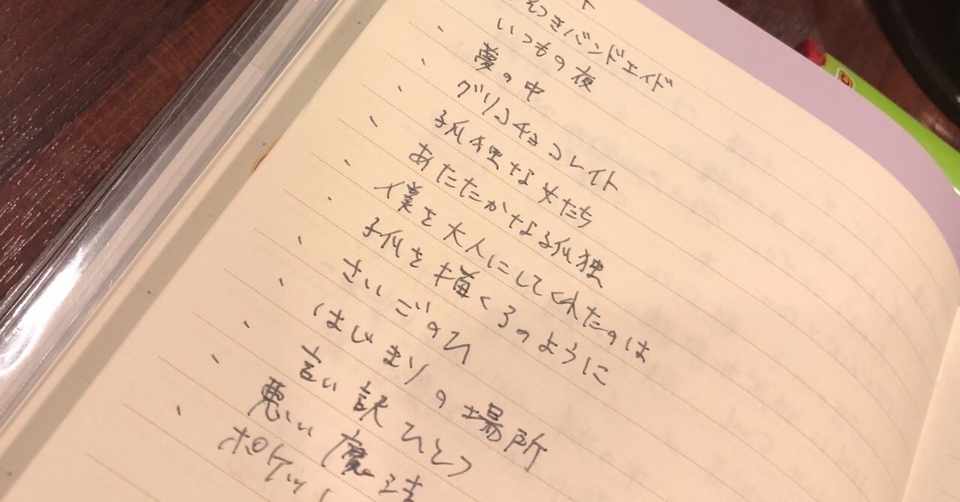 つきバンドエイド
いつもの夜
夢の中
グリコチョコレイト
孤独な女たち
あたたかな孤独
僕を大人にしてくれたのは
孤を描くるのように
さいごのひ
はじまりの場所
言い訳ひとつ
悪い魔法
ポケット